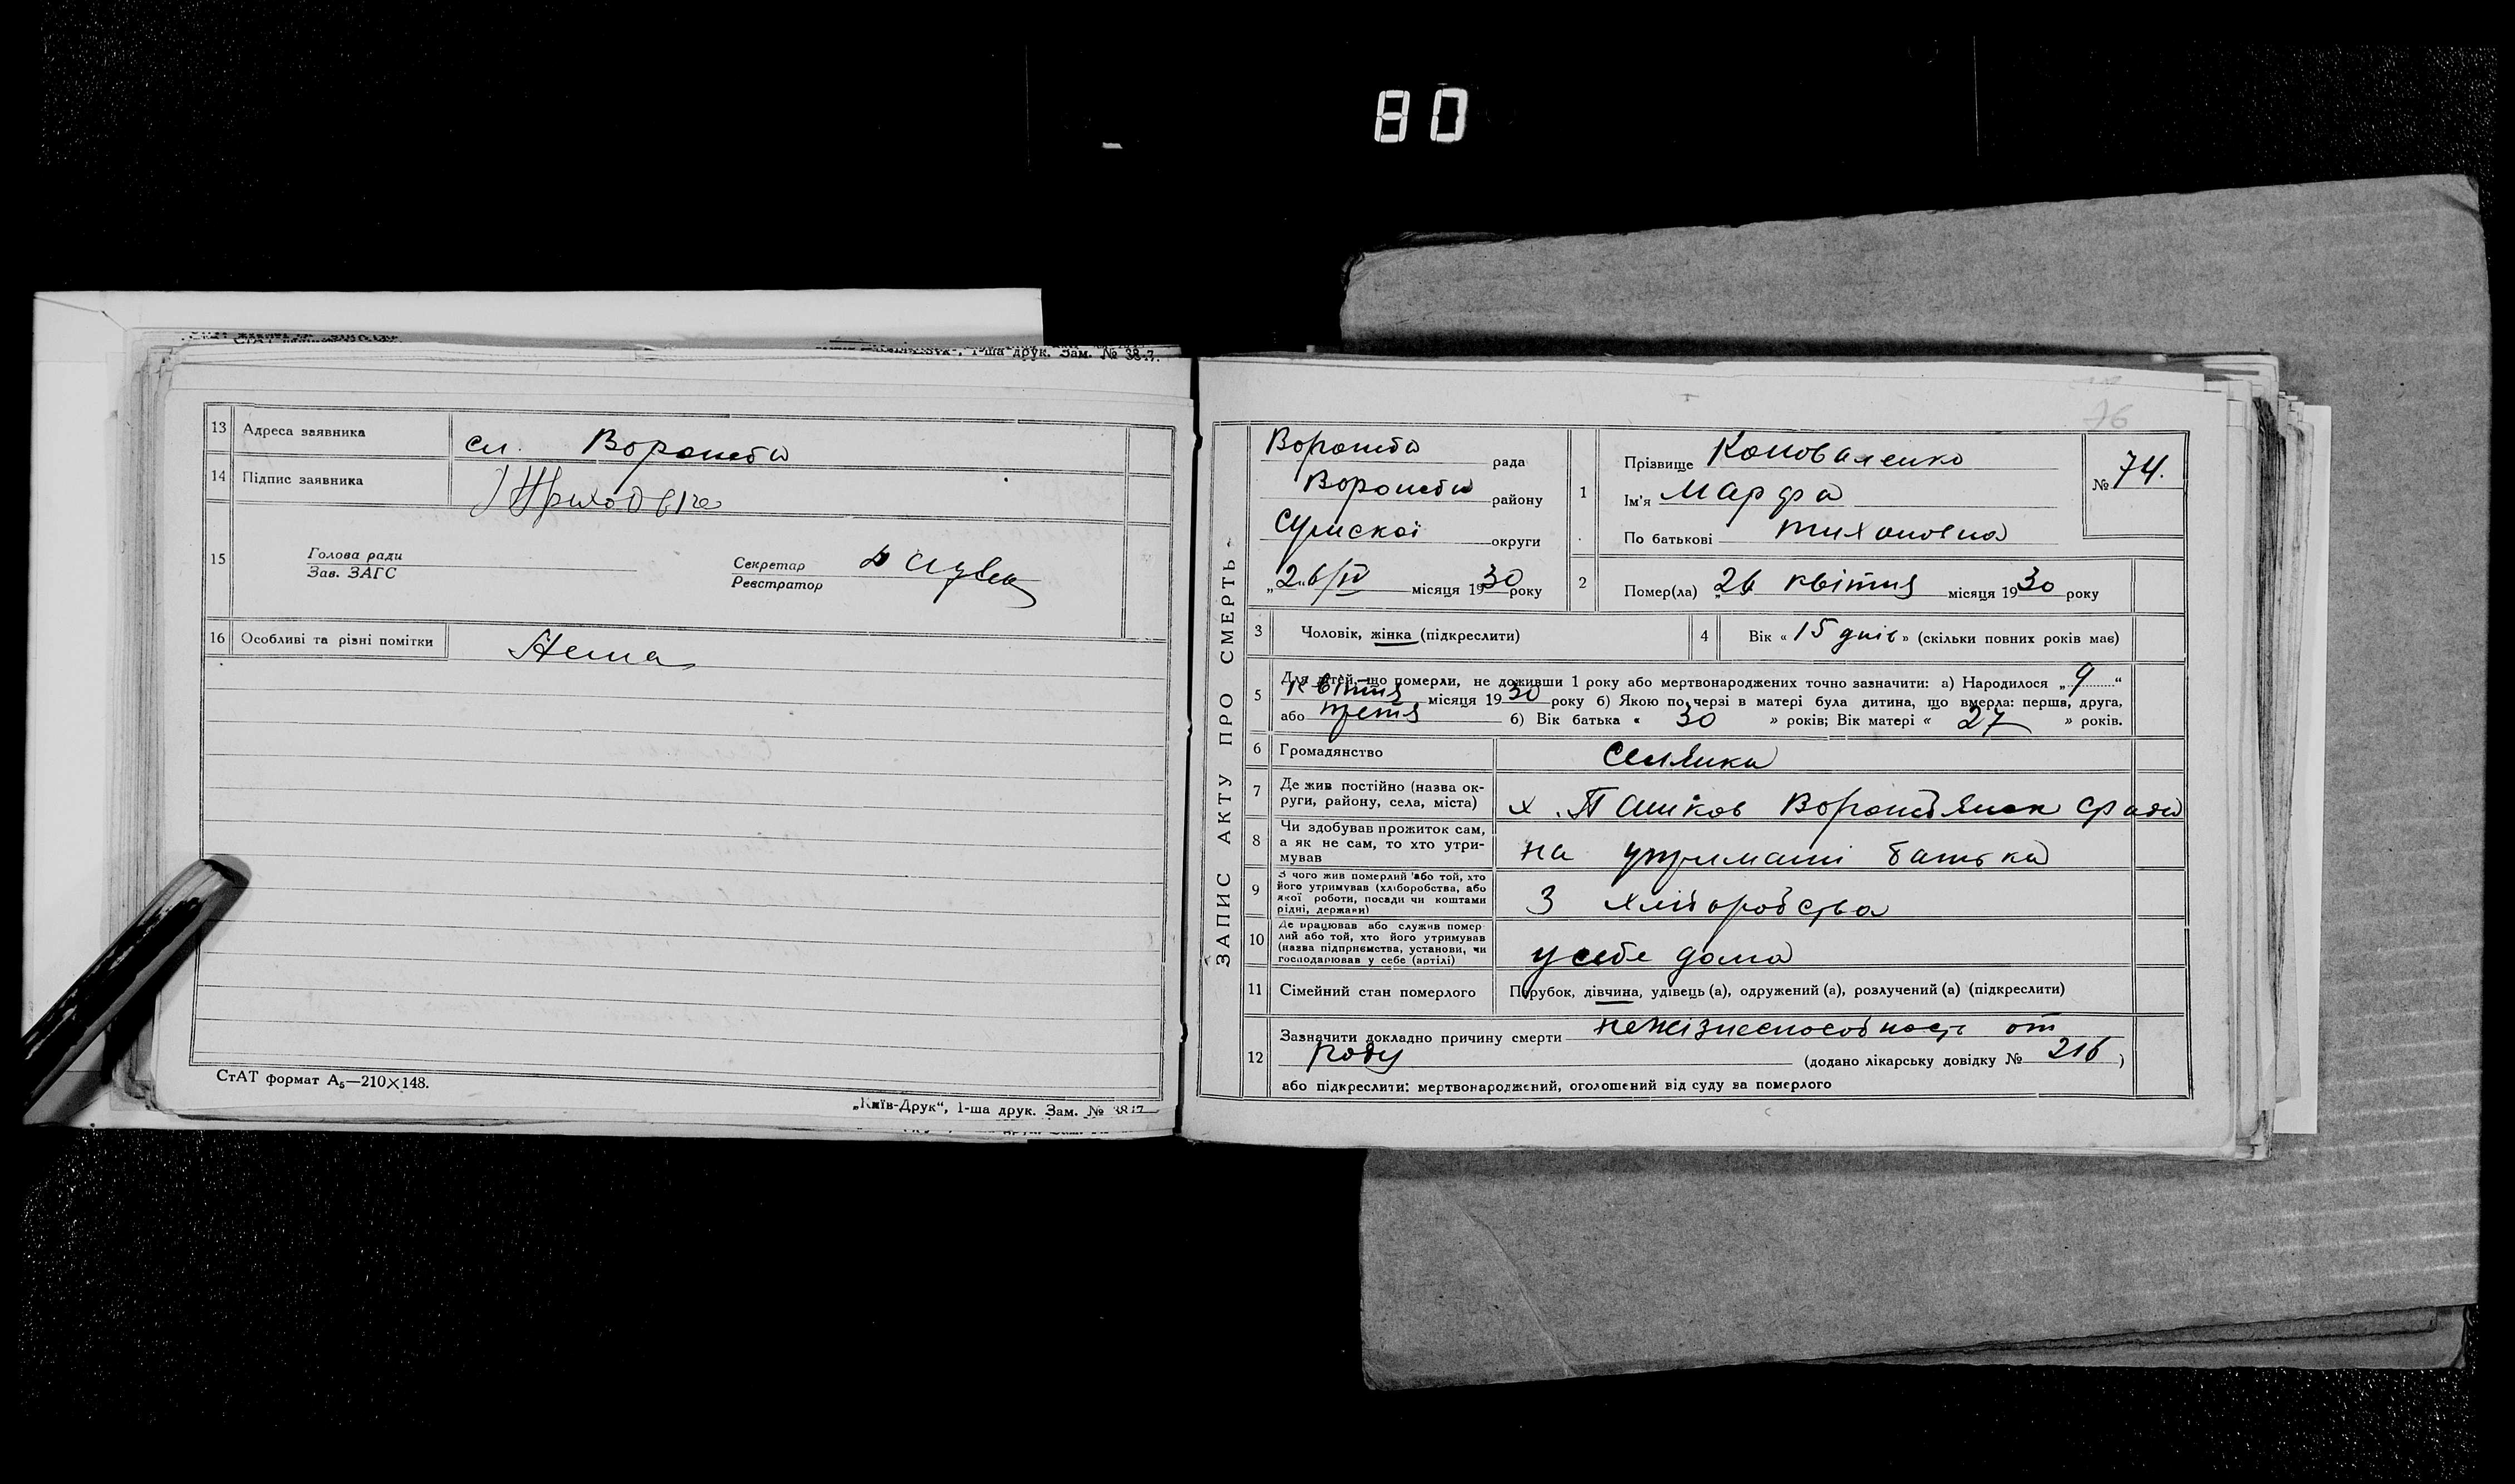 80
1-ша друк. Зам. № 3817.
13 Адреса заявника сл. Ворожба
14 Підпис заявника
15 Голова ради
Зав. ЗАГС
Секретар
Реєстратор
16 Особливі та різні помітки Нема
СтАТ формат А5—210×148.
„Київ-Друк“, 1-ша друк. Зам. № 3817
76
ЗАПИС АКТУ ПРО СМЕРТЬ
Ворожба рада
Ворожба району
Сумскоі округи
„26/IV місяця 1930 року
1 Прізвище Коноваленко
Ім'я Марфа
По батькові Тихоновна
№ 74.
2 Помер(ла) „26 квітня місяця 1930 року
3 Чоловік, жінка (підкреслити)
4 Вік «15 днів» (скільки повних років має)
5 Для дітей, що померли, не доживши 1 року або мертвонароджених точно зазначити: а) Народилося „9“
квітня місяця 1930 року б) Якою по черзі в матері була дитина, що вмерла: перша, друга,
або третя б) Вік батька « 30 » років; Вік матері « 27 » років.
6 Громадянство Селянка
7 Де жив постійно (назва ок-
руги, району, села, міста) х. Пашков Ворожбянск сради
8 Чи здобував прожиток сам,
а як не сам, то хто утри-
мував на утриманні батька
9 З чого жив померлий або той, хто
його утримував (хліборобства, або
якої роботи, посади чи коштами
рідні, держави) З хліборобства
10 Де працював або служив помер
лий або той, хто його утримував
(назва підприємства, установи, чи
господарював у себе (артілі) у себе дома
11 Сімейний стан померлого Парубок, дівчина, удівець (а), одружений (а), розлучений (а) (підкреслити)
12 Зазначити докладно причину смерти нежізнеспособность от
роду (додано лікарську довідку № 216)
або підкреслити: мертвонароджений, оголошений від суду за померлого